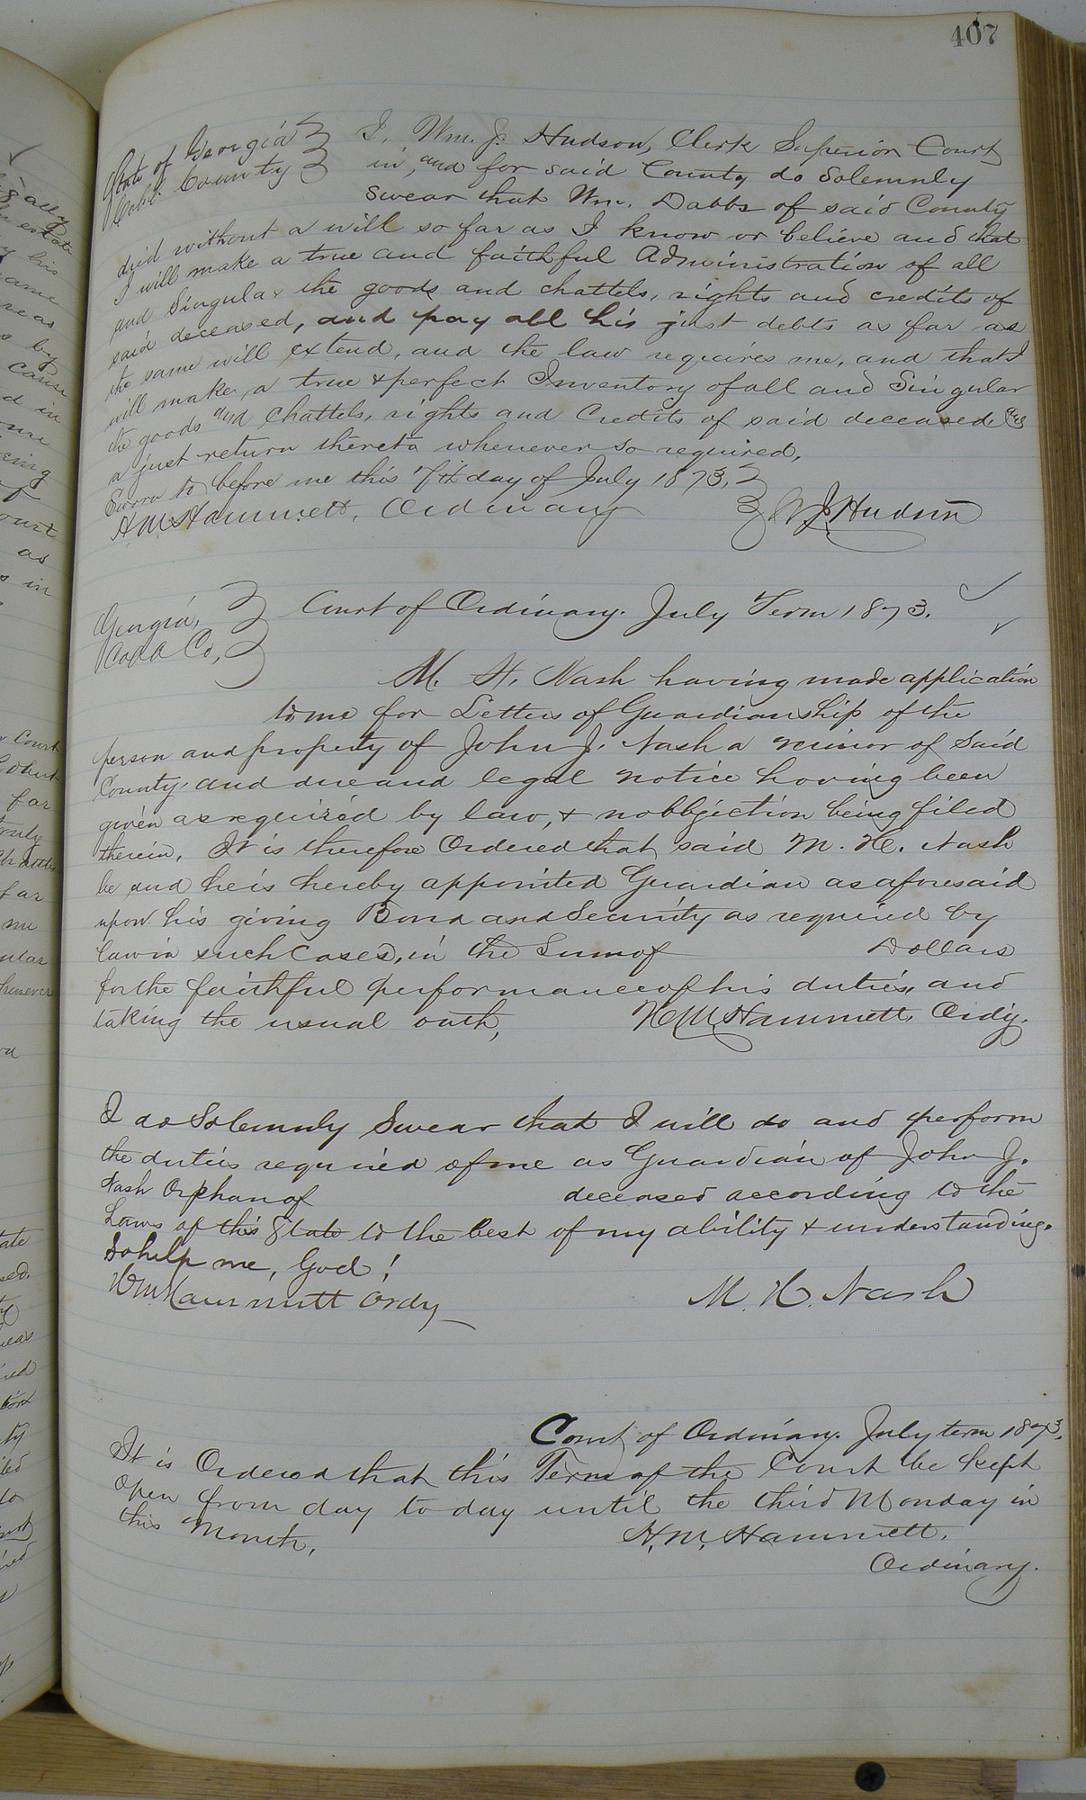 407
State of Georgia
Cobb County
I, Wm. J. Hudson, Clerk Superior Court
in, and for said County do Solemnly
swear that Wm. Dabbs of said County
died without a will so far as I know or believe and that
I will make a true and faithful Administration of all
and Singular the goods and chattels, rights and credits of
said deceased, and pay all his just debts as far as
the same will extend, and the law requires me, and that I
will make a true & perfect Inventory of all and Singular
the goods and Chattels, rights and Credits of said deceased
a just return thereto whenever so required.
Sworn to before me this 7th day of July 1873.
H M Hammett, Ordinary
W J Hudson
Georgia,
Cobb Co,
Court of Ordinary. July Term 1873.
M. H. Nash having made application
to me for Letters of Guardianship of the
person and property of John J. Nash a minor of Said
County, and due and legal notice having been
given as required by law, & no objection being filed
therein, It is therefore Ordered that said M. H. Nash
be and he is hereby appointed Guardian as aforesaid
upon his giving Bond and Security as required by
law in such Cases, in the Sum of Dollars
for the faithful performance of his duties, and
taking the usual oath,
H M Hammett, Ordy.
I do Solemnly Swear that I will do and perform
the duties required of me as Guardian of John J.
Nash Orphan of deceased according to the
Laws of this State to the best of my ability & understanding.
So help me, God!
HM Hammett Ordy
M. H. Nash
Court of Ordinary. July term 1873.
It is Ordered that this Term of the Court be kept
open from day to day until the third Monday in
this Month.
H. M. Hammett.
Ordinary.